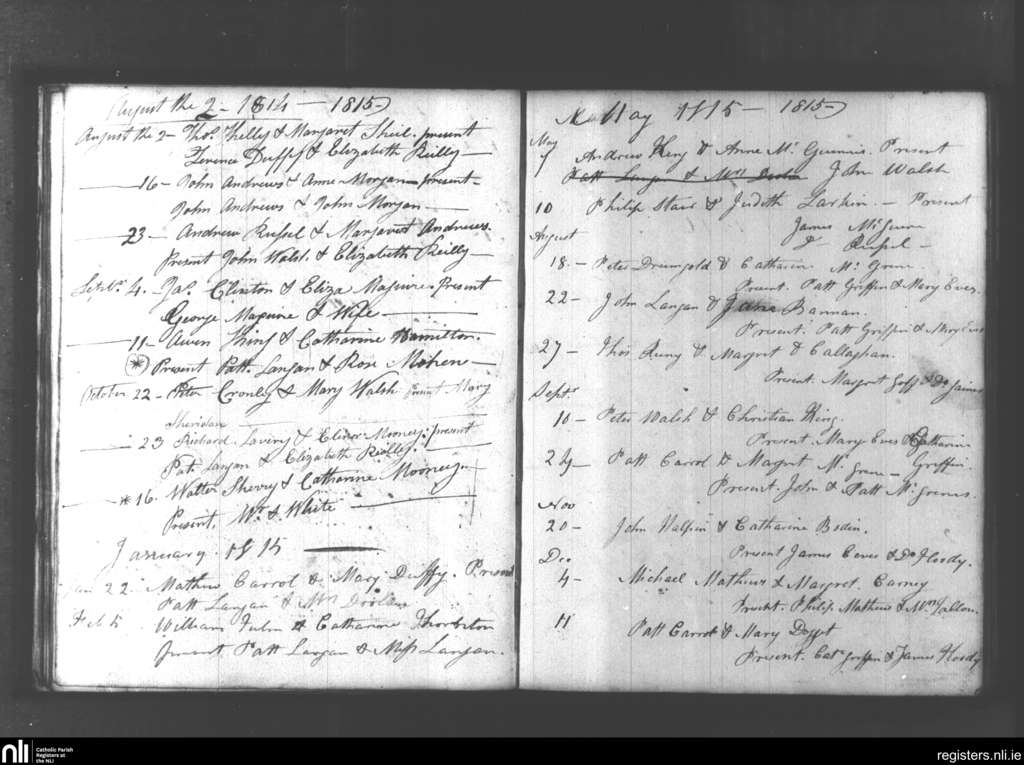 August the 2 - 1814 - 1815
August the 2 - Thos. Kelly & Margaret Sheil - present
Terence Duffy & Elizabeth Reilly -
16 - John Andrews & Anne Morgan - present -
John Andrews & John Morgan -
23 - Andrew Russel & Margaret Andrews.
Present John Walsh & Elizabeth Reilly -
Septr. 4. Jas. Clinton & Eliza Maguire - Present
George Maguire & Wife -
11 - Owen King & Catharine Hamilton.
Present Patt. Langan & Rose
October 22 - Peter Cronly & Mary Walsh Present Mary
Sheridan
23 Richard Lavery & Elinor Mooney: present
Pat. Langan & Elizabeth Reilly. -
* 16. Walter Sherry & Catharine Mooney -
Present. Mr. & White -
January. 1815
Jan 22. Mathew Carrol & Mary Duffy. Present
Patt Langan & Mrs Doolan
Feb 5 William & Catharine
present Patt Langan & Miss Langan.
May 1815 - 1815
May
7 Andrew King & Anne Mc. Present
Patt Langan & Mrs John Walsh
10 Philip & Judith Larkin. - Present
James
& Russel -
August
18. - Peter Drumgold & Catharin Mc.
Present. Patt Griffin & Mary Eves.
22 - John Langan & Jane Bannan.
Present. Patt Griffin & Mary Eves
27 - Thos & Margret Callaghan.
Present. Margret Goff & Do James
Septr.
10 - Peter Walsh & Christian King.
Present. Mary Eves & Catharine
24 - Patt Carrol & Margret Mc. - Griffin.
Present John & Patt Mc.
Nov
20 - John Halpin & Catharine
Present James Eeves & Do
Dec.
4 - Michael Mathews & Margret. Carney
Present. Philip Mathews & Wm
11 Patt Carrol & Mary
Present. Cat. Griffin & James
nli
Catholic Parish
Registers at
the NLI
registers.nli.ie